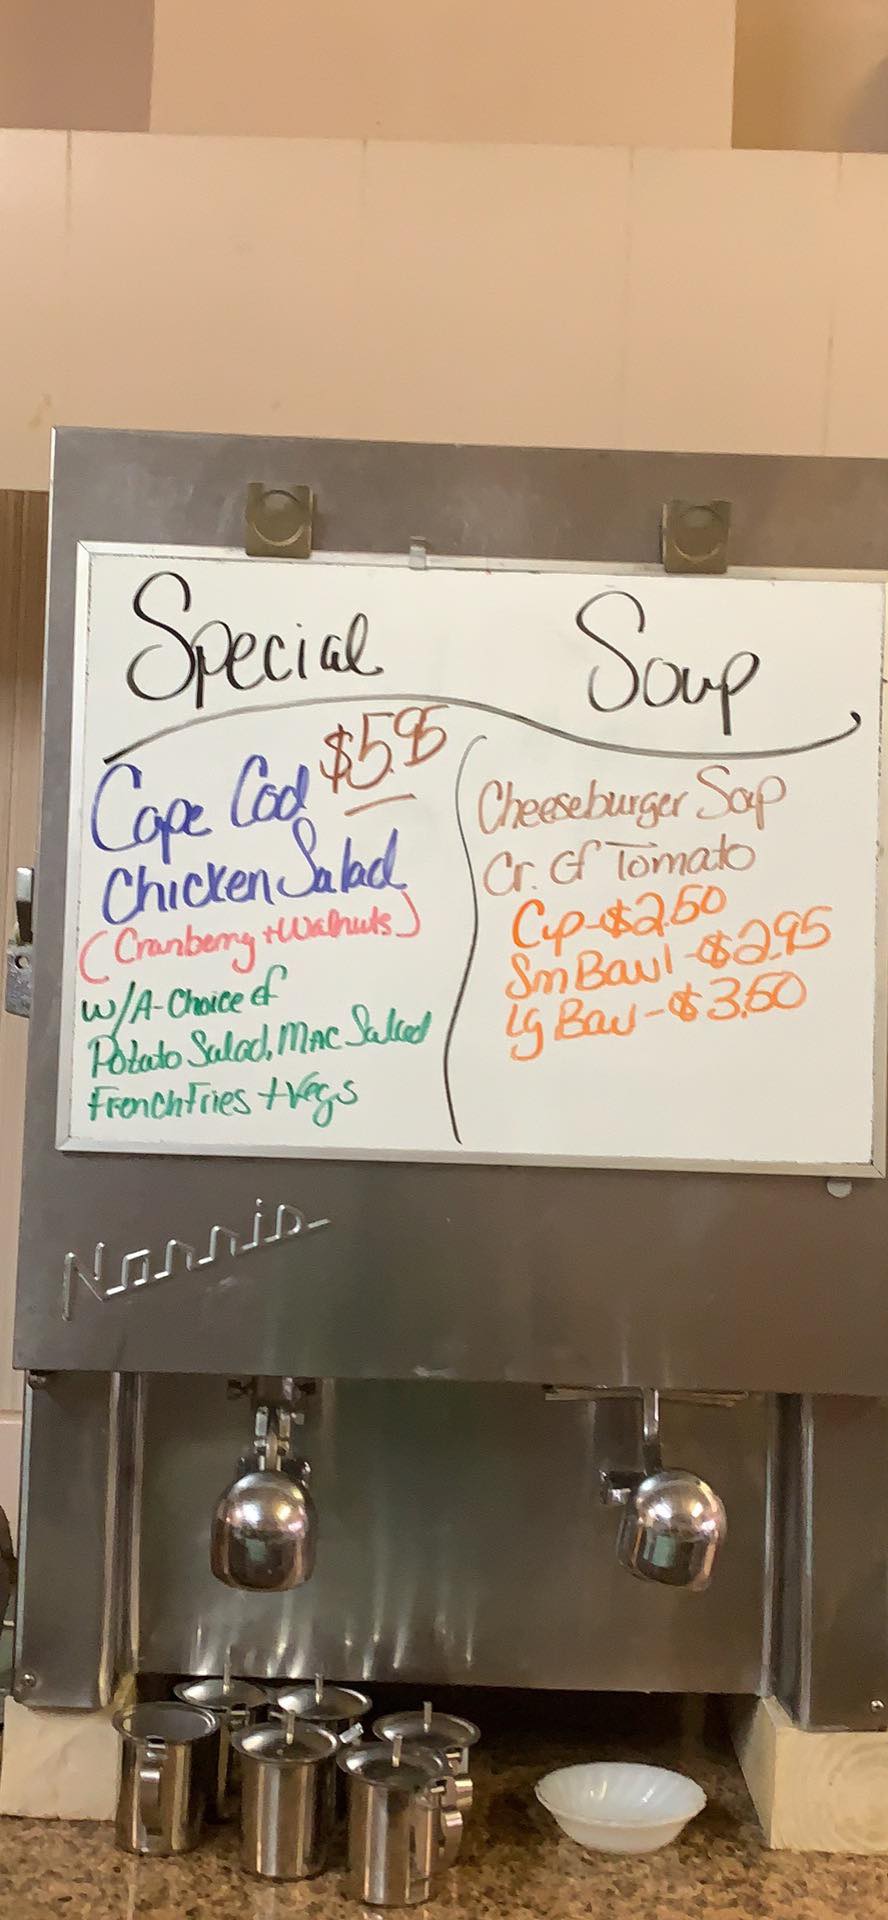 Special
$5.95
Cape Cod
Chicken Salad
(Cranberry + Walnuts)
w/A-Choice of
Potato Salad, Mac Salad
French Fries + Vegs
Soup
Cheeseburger Soup
Cr. of Tomato
Cup-$2.50
Sm Bawl-$2.95
Lg Bawl-$3.50
Norris